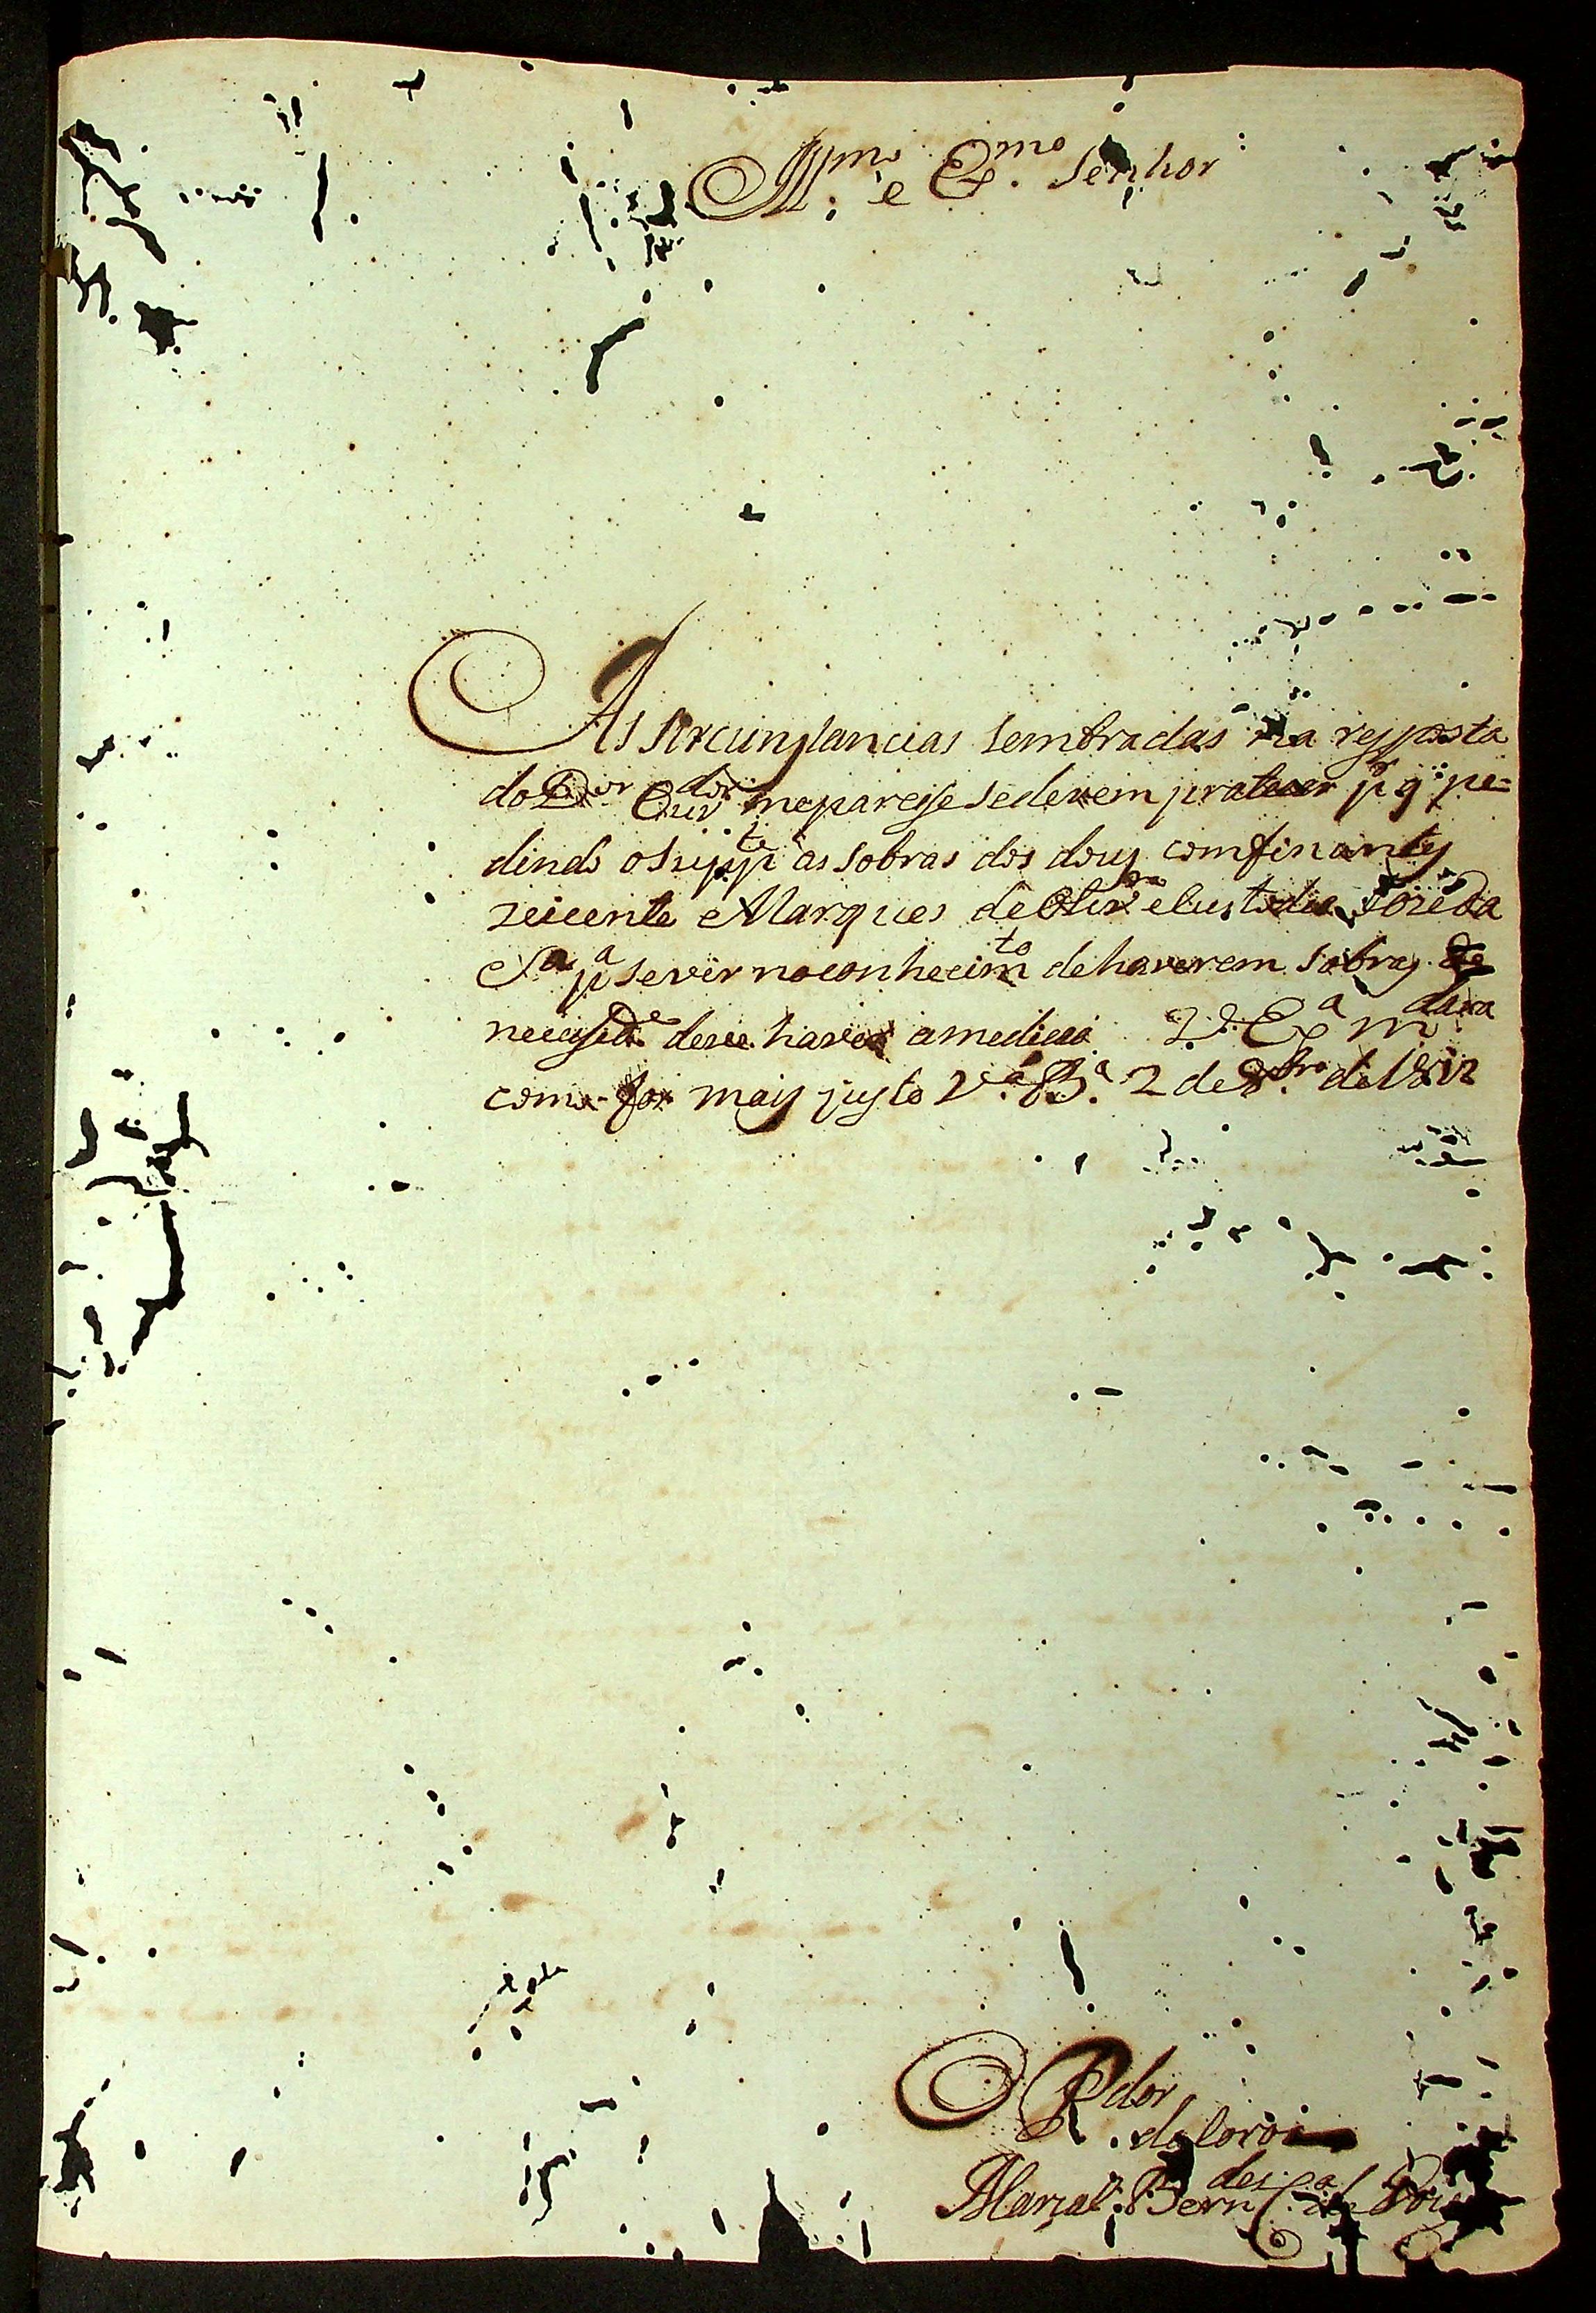 Illmo. e Exmo. Senhor
As sircunstancias lembradas na resposta
do Dor Ouvdor me parese se devem pratear pr q pe-
dindo o suppte as sobras dos dous comfinantes
Vicente Marques de Olivra e Custodio Joze da
Sa pa se vir no conhecimto de haverem sobras de
necessde deve haver a medicaõ VExa mdara
como for mais justo Va Ba 2 de 8bro de 1812
O Pdor da Coroa
Marçal Bern des